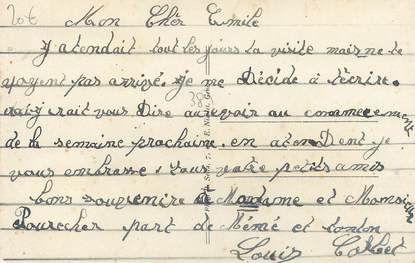 Mon Cher Emile
j'atendait tout les jours ta visite mais ne te
voyent pas arrivé. je me Décide à t'écrire.
irait vous Dire au revoir au commencement
de la semaine prochaine. en atenDent je
vous embrasse tous votre petits amis
bons souvenire de Madame et Monsieur
Pourcher part de Mémé et tonton
Louis